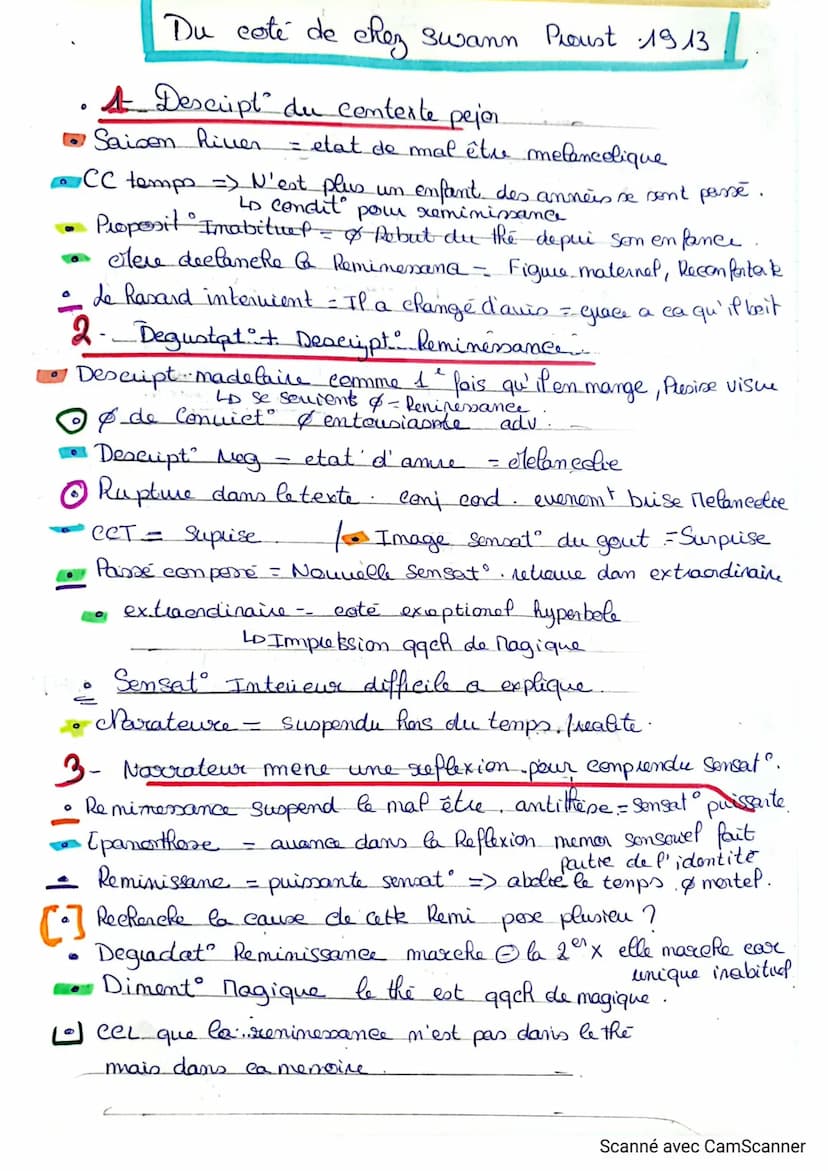 Du coté de chez Swann Proust 1913
1- Descript° du contexte pejor
Saison Hiver = etat de mal être melancolique
CC temps => N'est plus un enfant des années se sont passé.
↳ condit° pour reminissance
Proposit° Inabituel = Ø Rebut du thé depui son enfance.
Mere declanche la Reminessana = Figure maternel, Reconfortate
Le Hasard intervient = Il a changé d'avis = grace a ca qu'il boit
2- Degustat° + Descript° Reminéssance
Descript madelaine comme 1e fois qu'il en mange, Plesire visue
↳ se souvient Ø = Reninessance
Ø de Convict° Ø entousiasme adv.
Descript° Neg = etat d'ame = Melancolie
Rupture dans le texte. conj cord. evenemt brise Melancolie
CCT = Suprise / Image sensat° du gout = Surprise
Passé composé = Nouvelle sensat°. retrouve dan extraordinaire
extraordinaire -- coté exeptionel hyperbole
↳ Impression qqch de Magique
Sensat° Interieur difficile a explique.
Narateure = suspendu hors du temps. /realite.
3- Narrateur mene une reflexion pour comprendu sensat°.
Reminessance suspend le mal être. antithèse = sensat° puissante
Epanorthose = avance dans la Reflexion memor sensouel fait
partie de l'identité
Reminissanc = puissante sensat° => abolie le temps. Ø mortel.
[•] Recherche la cause de cette Remi pose plusieu ?
Degradat° Reminissance marche ⊖ la 2en x elle marche car
unique inabituel
Diment° Magique le thé est qqch de magique.
CCL que la reninessance n'est pas dans le thé
mais dans ca memoire
Scanné avec CamScanner